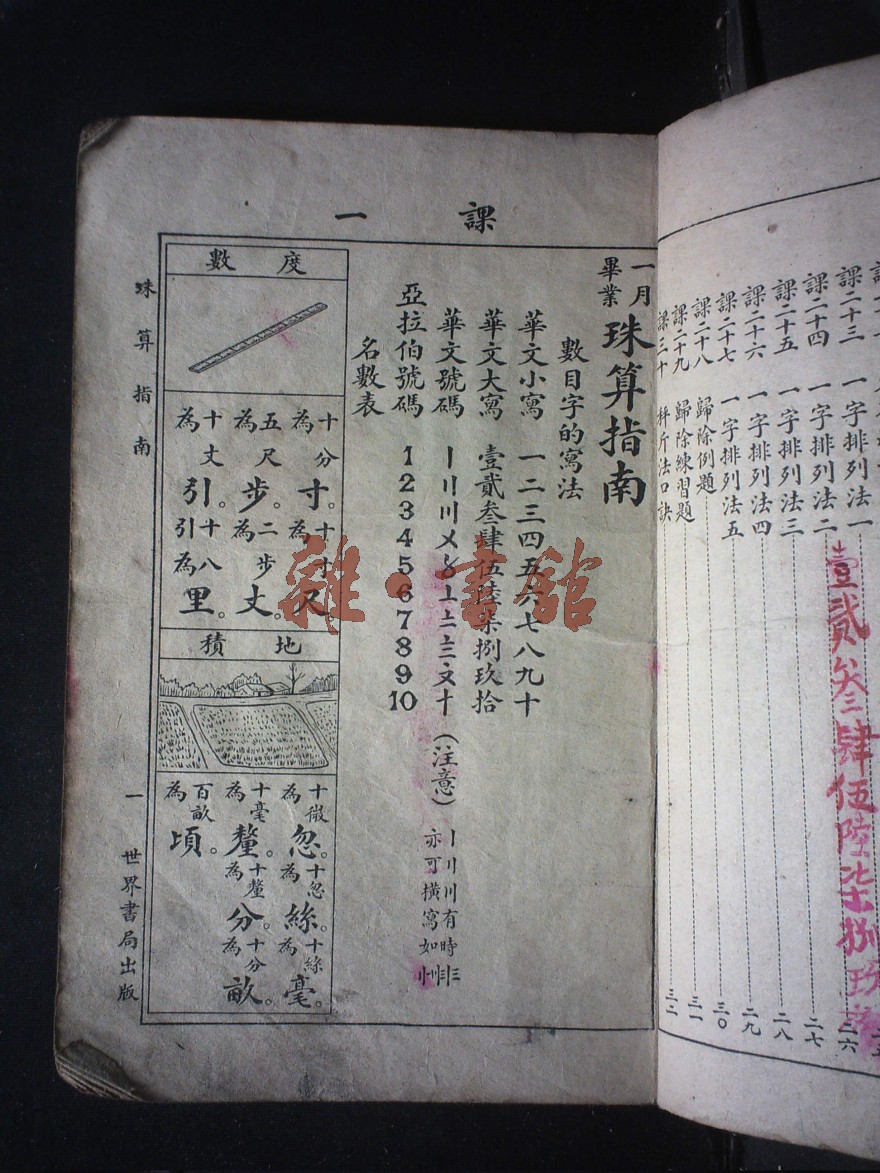 課二十三 一字排列法一 二六
課二十四 一字排列法二 二七
課二十五 一字排列法三 二八
課二十六 一字排列法四 二九
課二十七 一字排列法五 三〇
課二十八 歸除例題 三一
課二十九 歸除練習題 三二
課三十 秤斤法口訣
壹貳叁肆伍陸柒捌玖
課一
一月畢業 珠算指南
數目字的寫法
華文小寫 一二三四五六七八九十
華文大寫 壹貳叁肆伍陸柒捌玖拾
華文號碼 〡〢〣〤〥〦〧〨〩十 (注意) 〡〢〣有時亦可橫寫如
亞拉伯號碼 1 2 3 4 5 6 7 8 9 10
名數表
度數
十分為寸。十寸為尺。
五尺為步。二步為丈。
十丈為引。十八引為里。
地積
十微為忽。十忽為絲。十絲為毫。
十毫為釐。十釐為分。十分為畝。
百畝為頃。
珠算指南 一 世界書局出版
雜·書舘